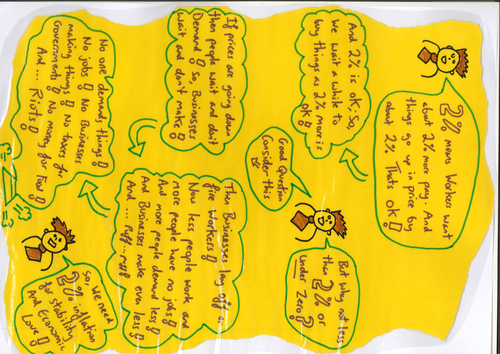 2% means Workers want
about 2% more pay. And
things go up in price by
about 2%. That's ok!
But why not less
than 2% or
Under Zero?
And 2% is ok. So,
We wait a while to
buy things as 2% more is
ok!
Good Question
Consider this
If prices are going down
then people wait and don't
Demand! So, Businesses
wait and don't make!
Then Businesses lay off or
fire workers!
Now less people work and
more people have no jobs!
And more people demand less!
And Businesses make even less!
And...
No one demands things!
No jobs! No Businesses
making things! No taxes for
Governments! No money for Food!
And ... Riots!
So we need
2% inflation
for stability
And Economic
Love!